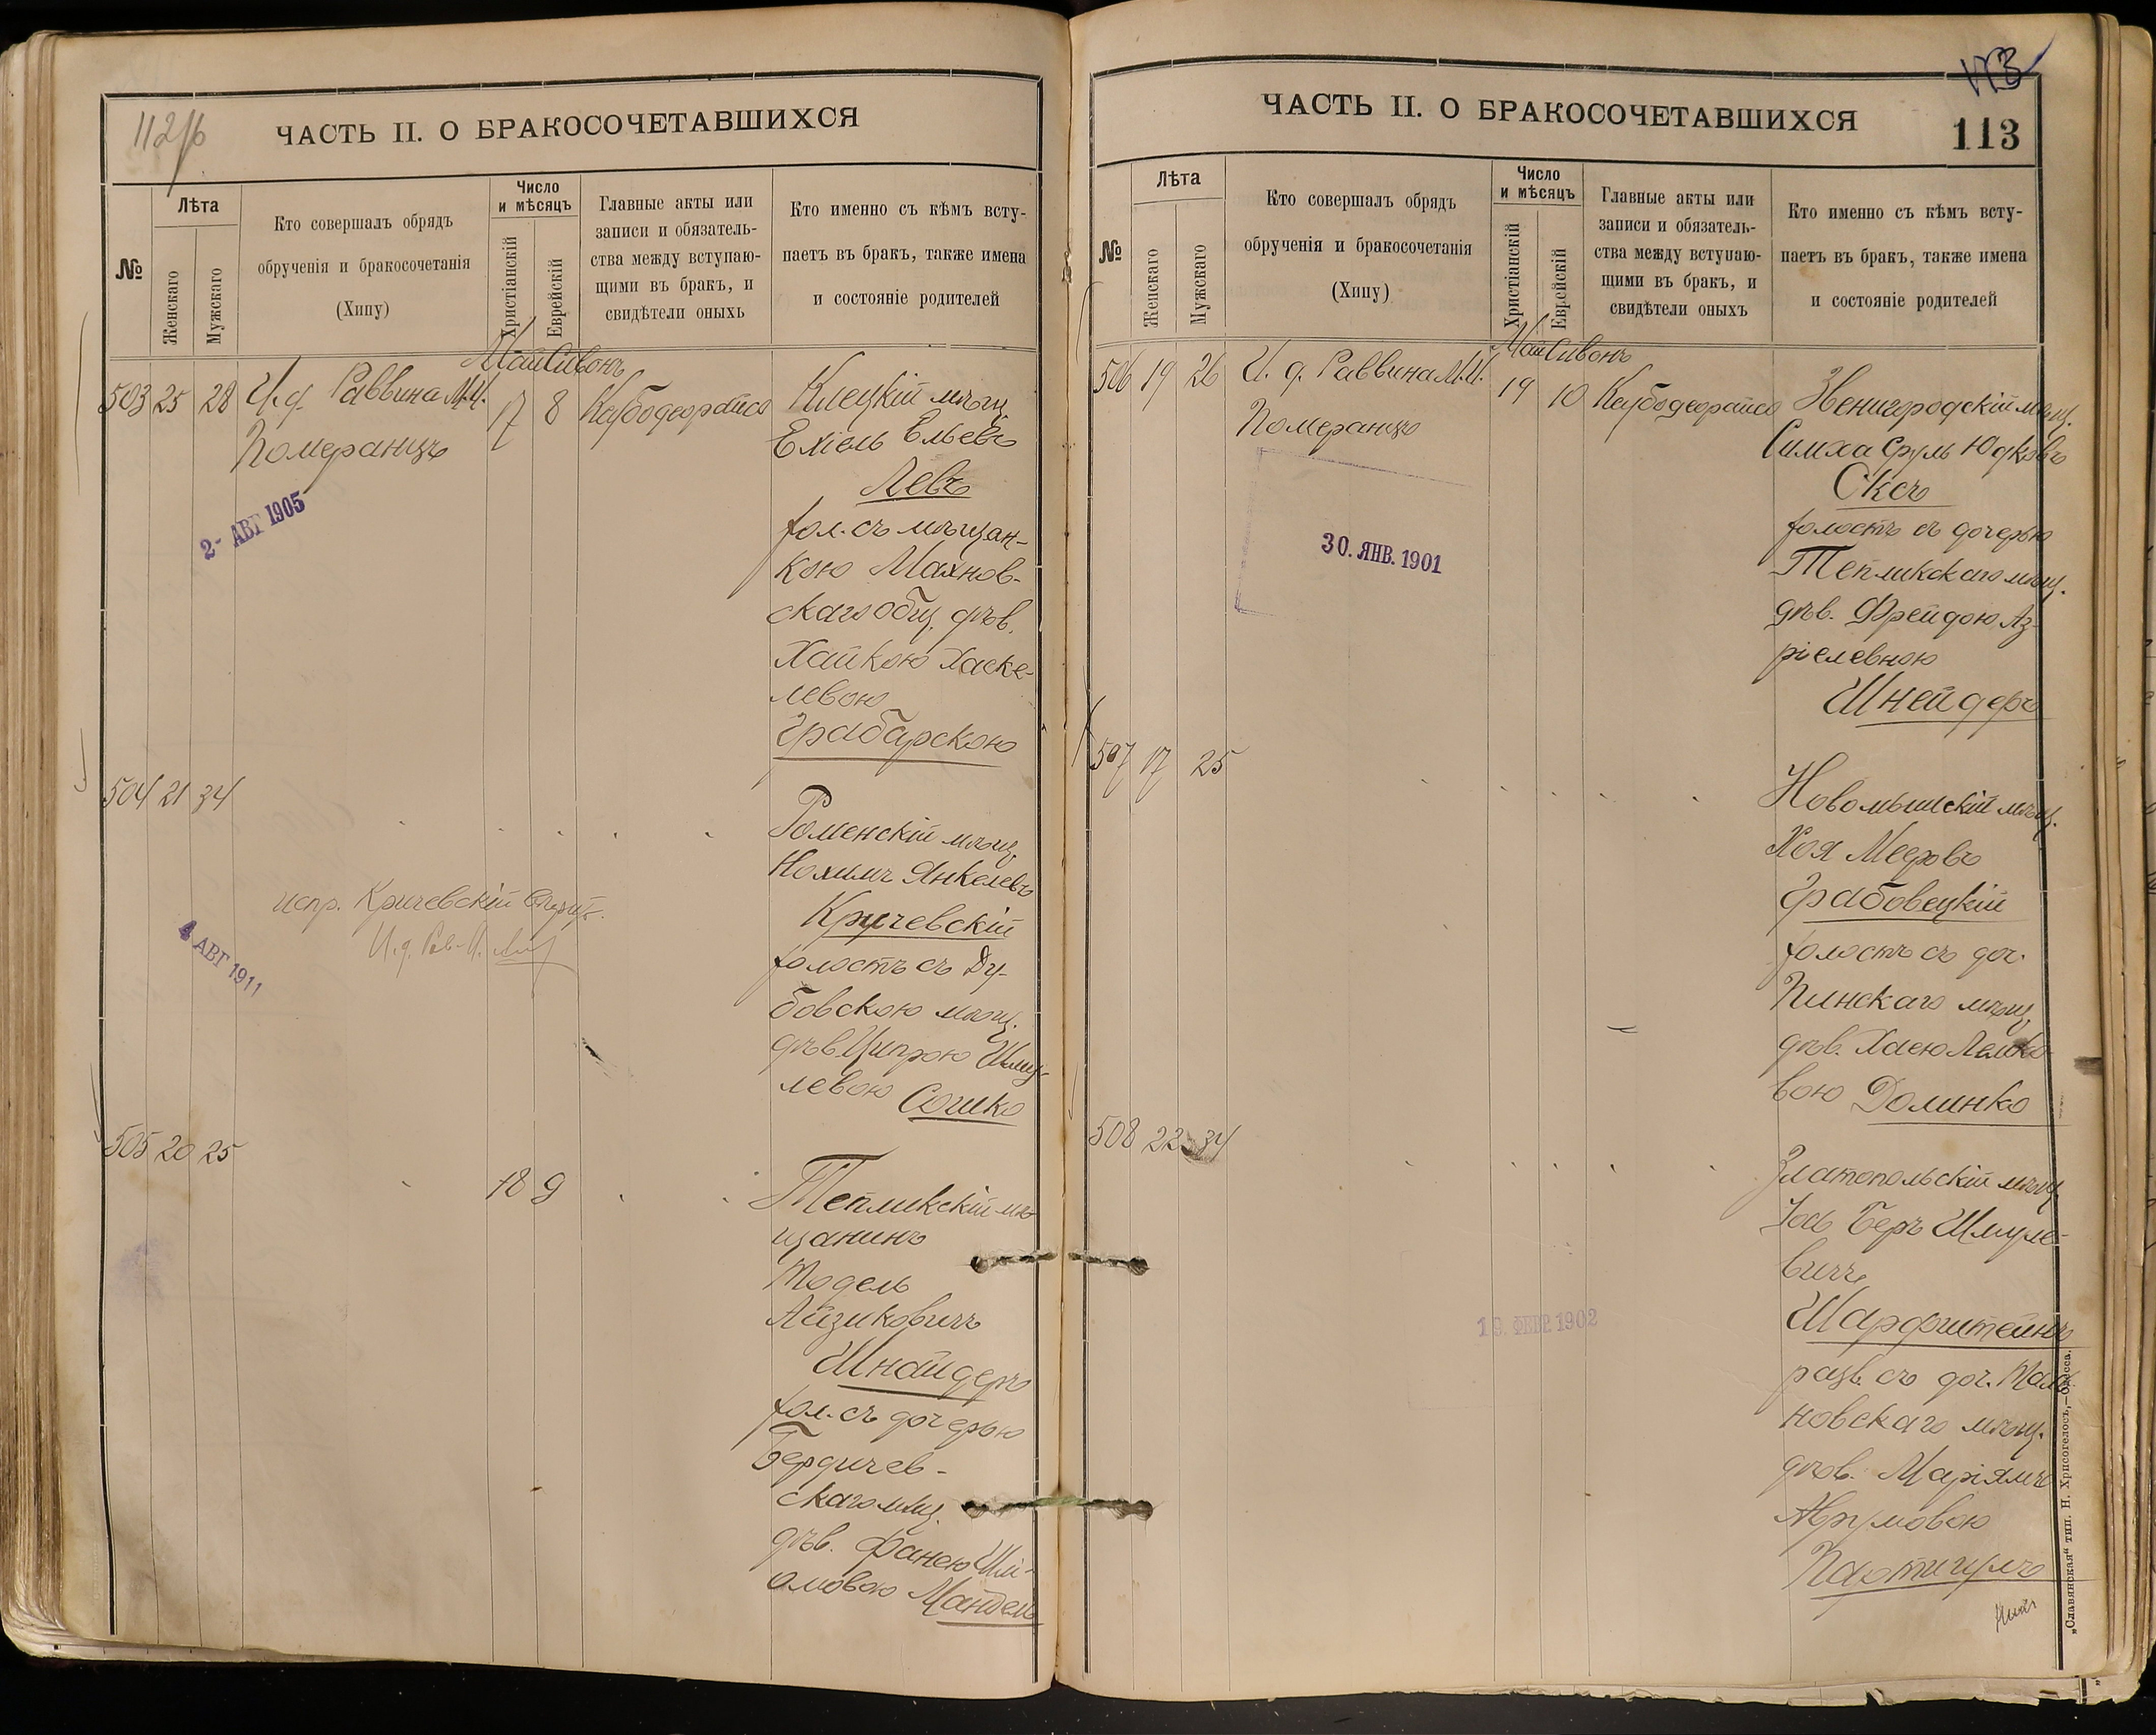 112/б
ЧАСТЬ II. О БРАКОСОЧЕТАВШИХСЯ
№
Лѣта
Женскаго
Мужскаго
Кто совершалъ обрядъ
обрученія и бракосочетанія
(Хипу)
Число
и мѣсяцъ
Христіанскій
Еврейскій
Главные акты или
записи и обязатель-
ства между вступаю-
щими въ бракъ, и
свидѣтели оныхъ
Кто именно съ кѣмъ всту-
паетъ въ бракъ, также имена
и состояніе родителей
Май Сивонъ
503 25 28 И. д. Раввина М.И. 17 8
Померанцъ
2- АВГ 1905
Клецкій мѣщ.
Ехіель Ельевъ
Левъ
хол. съ мѣщан-
кою Махнов-
скаго общ. дѣв.
Хайкою Хаске-
левою
Грабарскою
504 21 34
Роменскій мѣщ.
Нохимъ Янкелевъ
Кричевскій
холостъ съ Ду-
бовскою мѣщ.
дѣв. Ципрою Шму-
левою Сошко
испр. Кричевскій
И. д. Рав.
4 АВГ 1911
505 20 25 18 9
Тепликскій мѣ-
щанинъ
Тодель
Айзиковичъ
Шнайдеръ
хол. съ дочерью
Бердичев-
скаго мѣщ.
дѣв. Фанею Шлі-
омовою Мандель
113
ЧАСТЬ II. О БРАКОСОЧЕТАВШИХСЯ
113
№
Лѣта
Женскаго
Мужскаго
Кто совершалъ обрядъ
обрученія и бракосочетанія
(Хипу)
Число
и мѣсяцъ
Христіанскій
Еврейскій
Главные акты или
записи и обязатель-
ства между вступаю-
щими въ бракъ, и
свидѣтели оныхъ
Кто именно съ кѣмъ всту-
паетъ въ бракъ, также имена
и состояніе родителей
Май Сивонъ
506 19 26 И. д. Раввина М.И. 19 10
Померанцъ
30. ЯНВ. 1901
Звенигородскій мѣщ.
Симха Сруль Юдковъ
Оксъ
холостъ съ дочерью
Тепликскаго мѣщ.
дѣв. Фрейдою Аз-
ріелевною
Шнейдеръ
507 17 25
Новомышскій мѣщ.
Хоя Мееровъ
Грабовецкій
холостъ съ доч.
Пинскаго мѣщ.
дѣв. Хаею Лемко-
вою Долинко
508 22 34
Златопольскій мѣщ.
Іось Беръ Шмуле-
вичъ
Шарфштейнъ
разв. съ доч.
новскаго мѣщ.
дѣв. Маріямъ
Аврумовою
19. ФЕВР. 1902
„Славянская“ тип. Н. Хрисогелосъ,—Одесса.